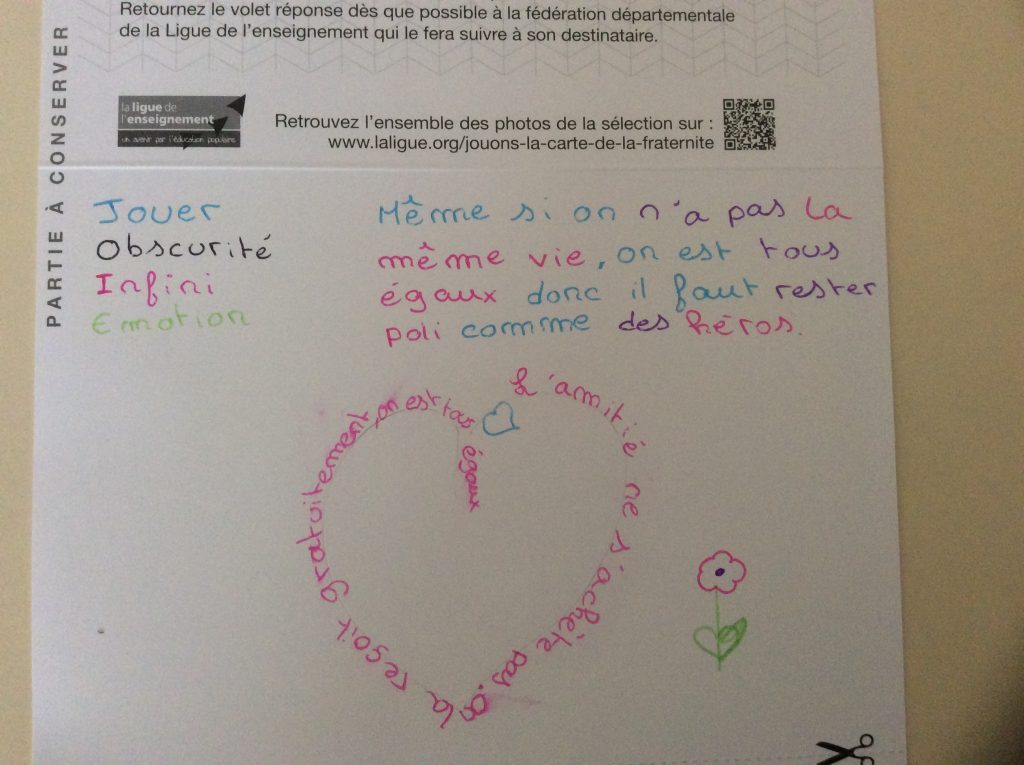 Retournez le volet réponse dès que possible à la fédération départementale
de la Ligue de l'enseignement qui le fera suivre à son destinataire.
PARTIE À CONSERVER
la ligue de
l'enseignement
un avenir par l'éducation populaire
Retrouvez l'ensemble des photos de la sélection sur :
www.laligue.org/jouons-la-carte-de-la-fraternite
Jouer
Obscurité
Infini
Emotion
Même si on n'a pas la
même vie, on est tous
égaux donc il faut rester
poli comme des héros.
L'amitié ne s'achète pas. On la reçoit gratuitement, on est tous égaux